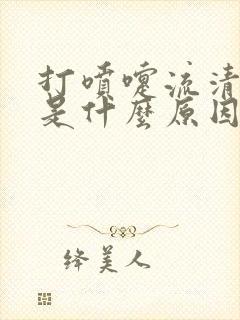 打噴嚏流清
是什麼原因
絳美人